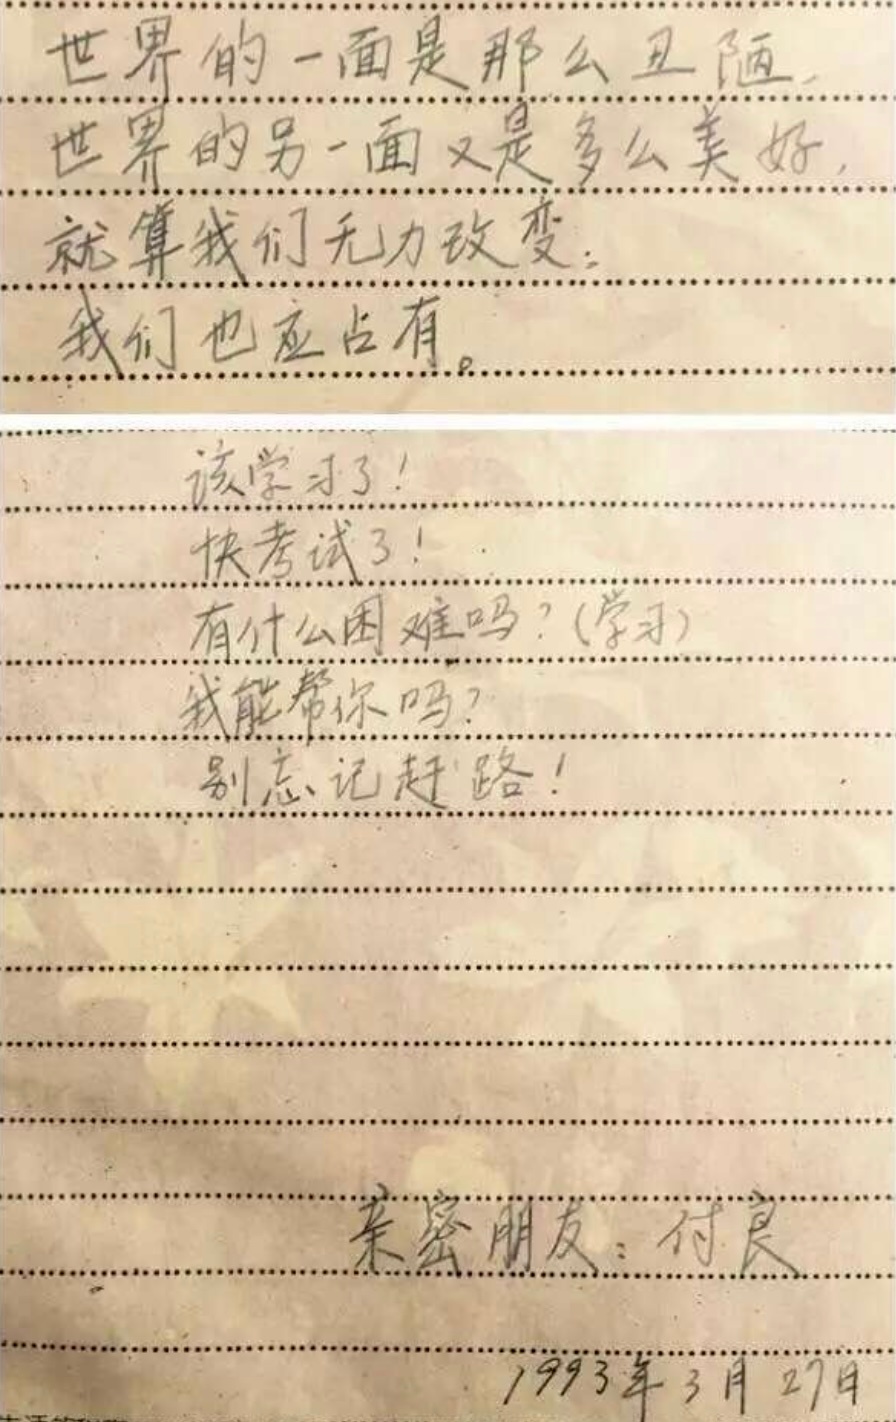 世界的一面是那么丑陋,
世界的另一面又是多么美好,
就算我们无力改变;
我们也应占有。
该学习了!
快考试了!
有什么困难吗?(学习)
我能帮你吗?
别忘记赶路!
亲密朋友:付良
1993年3月27日